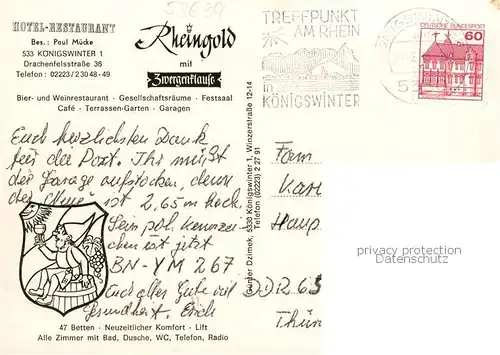 53639
HOTEL-RESTAURANT
Bes.: Paul Mücke
533 KÖNIGSWINTER 1
Drachenfelsstraße 36
Telefon: 02223/2 30 48-49
Rheingold
mit
Zwergenklause
Bier- und Weinrestaurant · Gesellschaftsräume · Festsaal
Café · Terrassen-Garten · Garagen
TREFFPUNKT
AM RHEIN
in
KÖNIGSWINTER
DEUTSCHE BUNDESPOST
60
Euch herzlichsten Dank
für die Post. Ihr müßt
der Garage aufstocken, denn
der ist 2,65 m hoch.
Sein pol. Kennzei-
chen ist jetzt
BN-YM 267
Euch alles Gute viel
Gesundheit. Erich
47 Betten · Neuzeitlicher Komfort · Lift
Alle Zimmer mit Bad, Dusche, WC, Telefon, Radio
Günter Dzimek, 5330 Königswinter 1, Winzerstraße 12-14
Telefon (02223) 2 27 91
Fam
Karl
Haup
DDR 63
Thür
privacy protection
Datenschutz